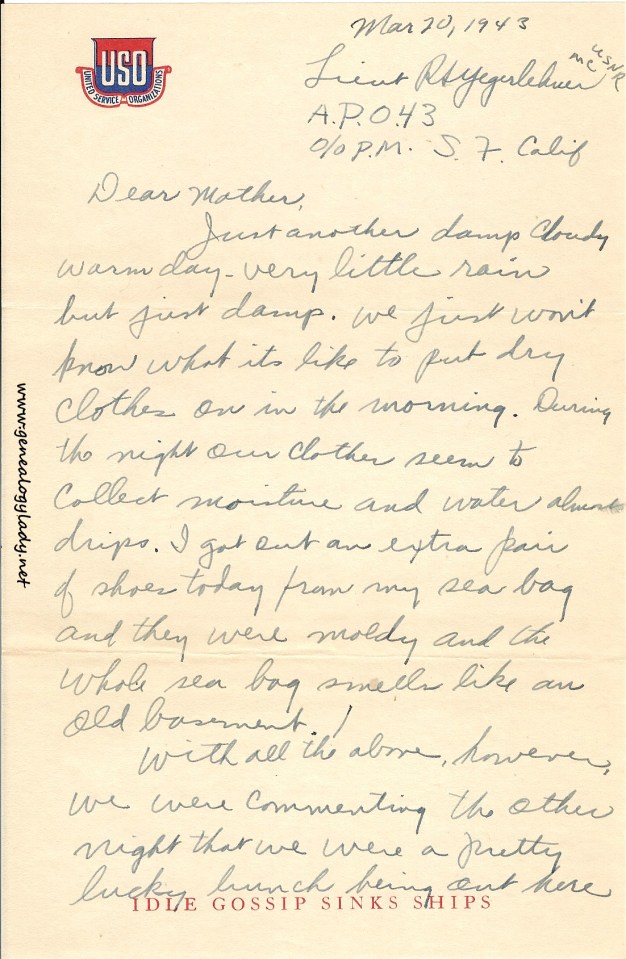 Mar 20, 1943
USO
UNITED SERVICE ORGANIZATIONS
Lieut RHYegerlehner MC USNR
A.P.O. 43
c/o P.M. S. F. Calif
Dear Mother,
Just another damp cloudy
warm day - very little rain
but just damp. We just won't
know what its like to put dry
clothes on in the morning. During
the night our clothes seem to
collect moisture and water almost
drips. I got out an extra pair
of shoes today from my sea bag
and they were moldy and the
whole sea bag smells like an
old basement!
With all the above, however,
we were commenting the other
night that we were a pretty
lucky bunch being out here
IDLE GOSSIP SINKS SHIPS
www.genealogylady.net